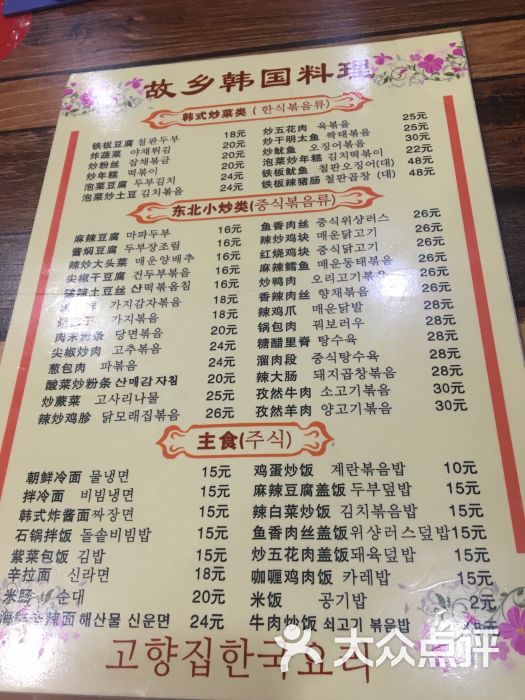 故乡韩国料理
韩式炒菜类 (한식볶음류)
铁板豆腐 철판두부 18元
炸蔬菜 야채튀김 20元
炒粉丝 잡채볶금 20元
炒年糕 떡볶이 24元
泡菜豆腐 두부김치 24元
泡菜炒土豆 김치볶음 24元
炒五花肉 육볶음 25元
炒干明太鱼 짝태볶음 30元
炒鱿鱼 오징어볶음 22元
泡菜炒年糕 김치떡볶이 48元
铁板鱿鱼 철판오징어(대) 48元
铁板辣猪肠 철판곱창 (대)
东北小炒类(중식볶음류)
麻辣豆腐 마파두부 16元
酱焖豆腐 두부장조림 16元
辣炒大头菜 매운양배추 16元
尖椒干豆腐 건두부볶음 16元
辣土豆丝 산떡음볶침 16元
가지감자볶음 18元
가지볶음 18元
肉末粉条 당면볶음 20元
尖椒炒肉 고추볶음 24元
葱包肉 파볶음 24元
酸菜炒粉条 산매감자침 20元
炒蕨菜 고사리나물 25元
辣炒鸡胗 닭모래집볶음 26元
鱼香肉丝 중식위샹러스 26元
辣炒鸡块 매운닭고기 26元
红烧鸡块 중식닭고기 26元
麻辣鳕鱼 매운동태볶음 26元
炒鸭肉 오리고기볶음 26元
香辣肉丝 향채볶음 26元
辣鸡爪 매운닭발 28元
锅包肉 꿔보러우 28元
糖醋里脊 탕수육 28元
溜肉段 중식탕수육 28元
辣大肠 돼지곱창볶음 28元
孜然牛肉 소고기볶음 30元
孜然羊肉 양고기볶음 30元
主食(주식)
朝鲜冷面 물냉면 15元
拌冷面 비빔냉면 15元
韩式炸酱面짜장면 15元
石锅拌饭 돌솥비빔밥 15元
紫菜包饭 김밥 15元
辛拉面 신라면 18元
米肠 순대 20元
海鲜辛辣面 해산물 신운면 24元
鸡蛋炒饭 계란볶음밥 10元
麻辣豆腐盖饭 두부덮밥 15元
辣白菜炒饭 김치볶음밥 15元
鱼香肉丝盖饭 위샹러스덮밥 15元
炒五花肉盖饭 돼육덮밥 15元
咖喱鸡肉饭 카레밥 15元
米饭 공기밥 2元
牛肉炒饭 쇠고기 볶음밥
고향집한국요리
大众点评